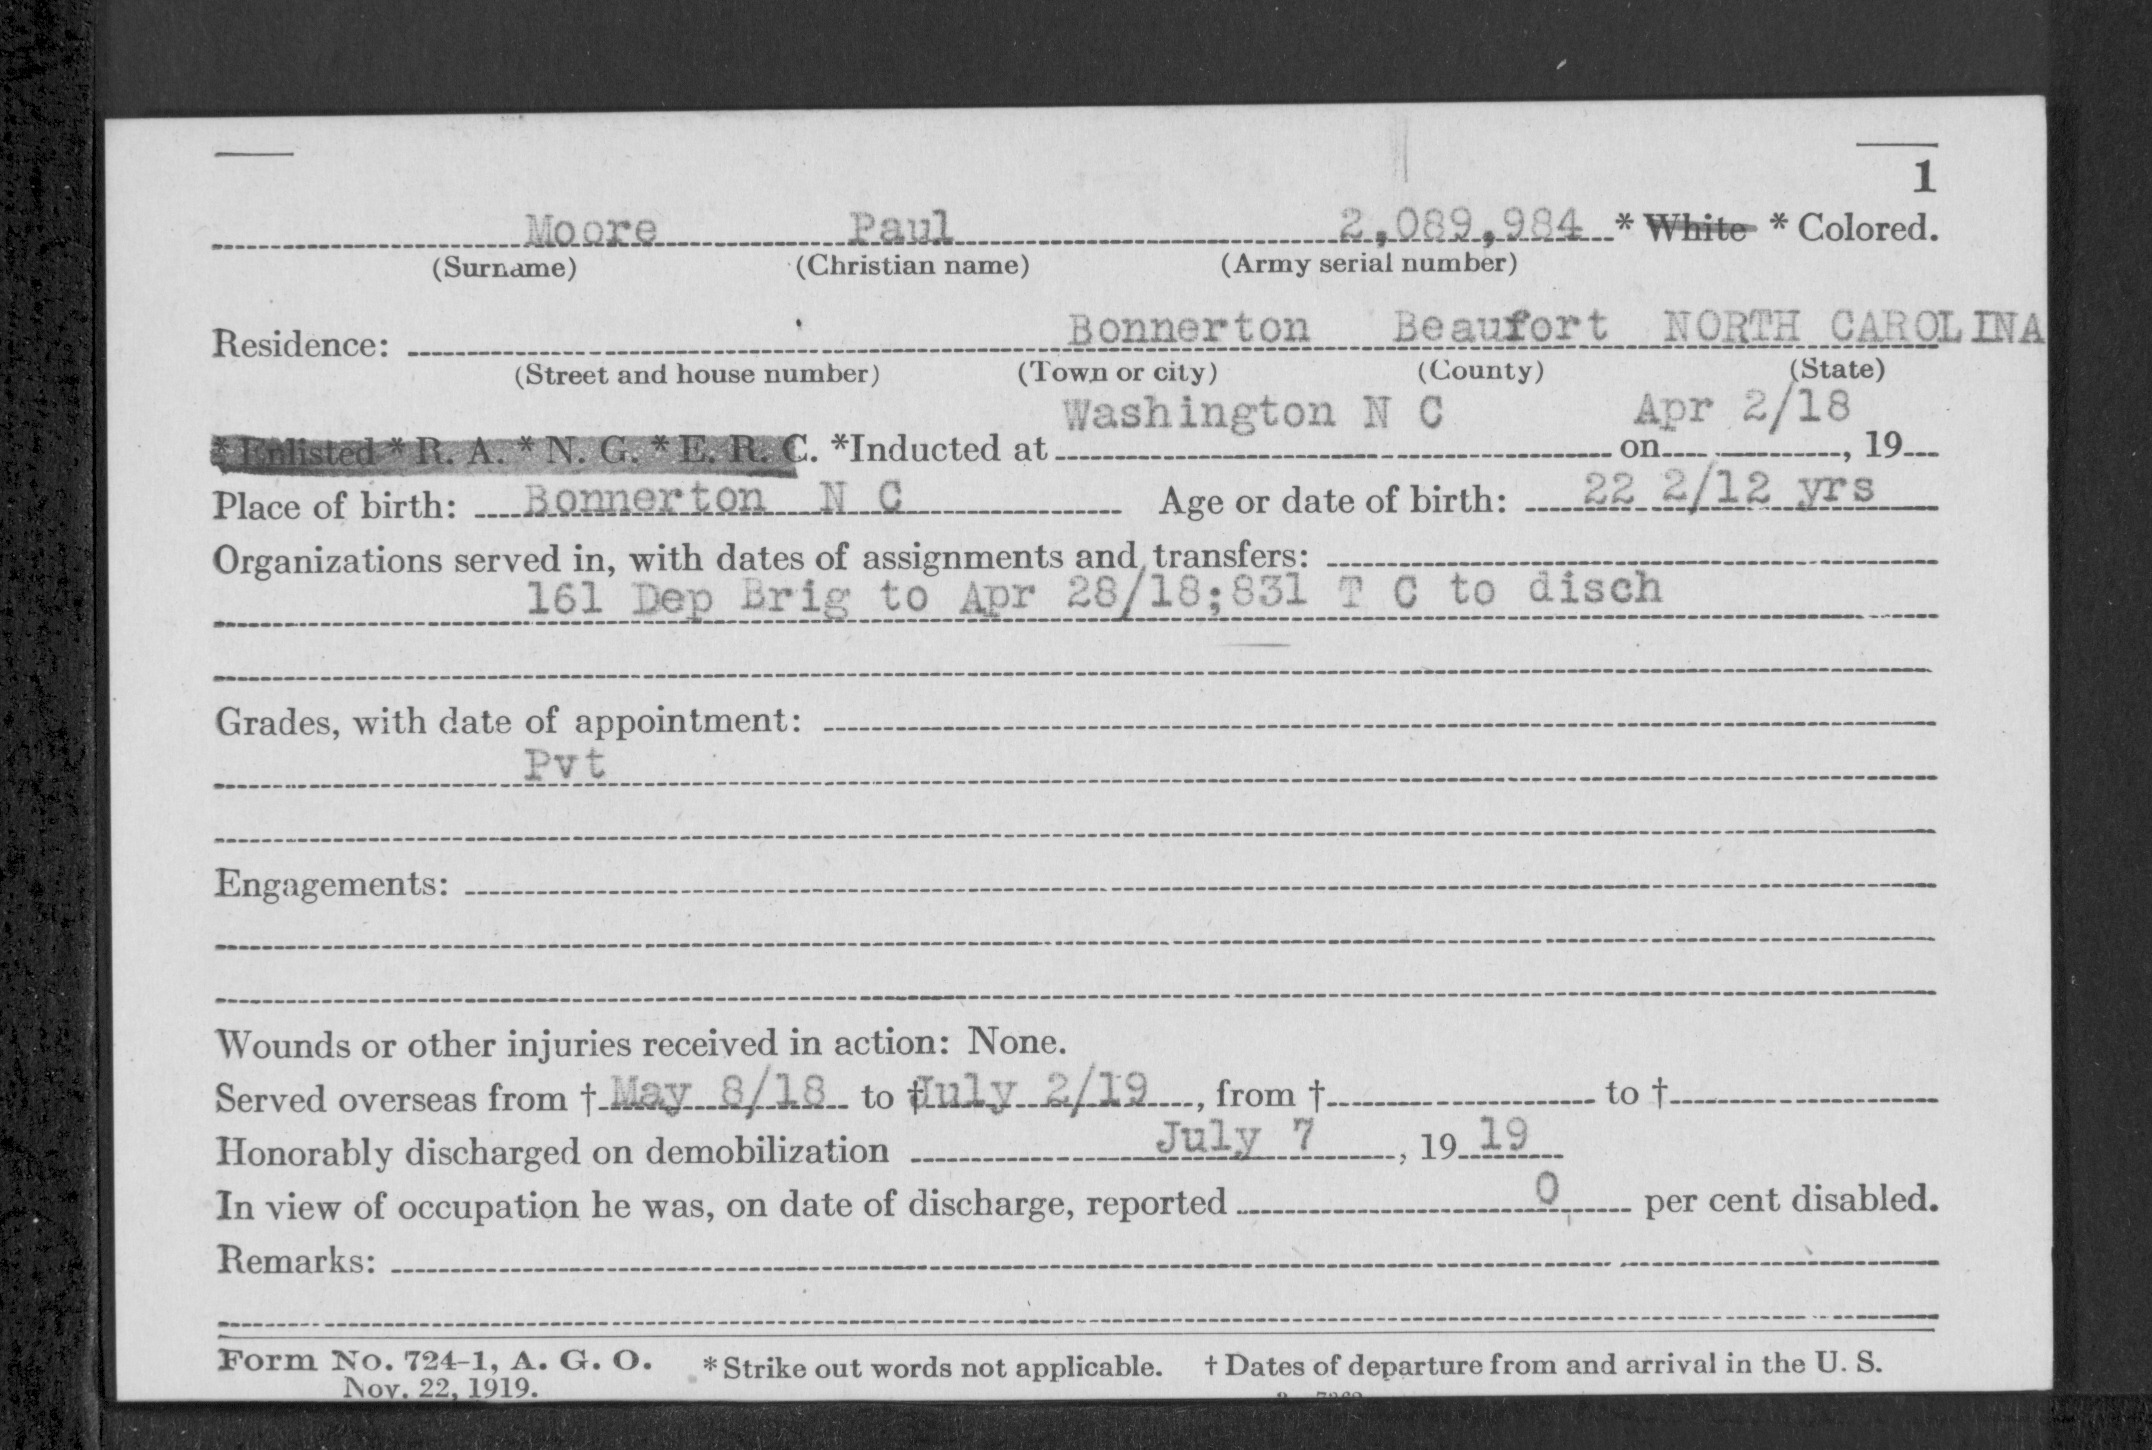 1
Moore Paul 2,089,984 * White * Colored.
(Surname) (Christian name) (Army serial number)
Residence: Bonnerton Beaufort NORTH CAROLINA
(Street and house number) (Town or city) (County) (State)
Washington N C Apr 2/18
* Enlisted * R. A. * N. G. * E. R. C. *Inducted at on , 19
Place of birth: Bonnerton N C Age or date of birth: 22 2/12 yrs
Organizations served in, with dates of assignments and transfers:
161 Dep Brig to Apr 28/18;831 T C to disch
Grades, with date of appointment:
Pvt
Engagements:
Wounds or other injuries received in action: None.
Served overseas from † May 8/18 to † July 2/19 , from † to †
Honorably discharged on demobilization July 7 , 19 19
In view of occupation he was, on date of discharge, reported 0 per cent disabled.
Remarks:
Form No. 724-1, A. G. O. * Strike out words not applicable. † Dates of departure from and arrival in the U. S.
Nov. 22, 1919.